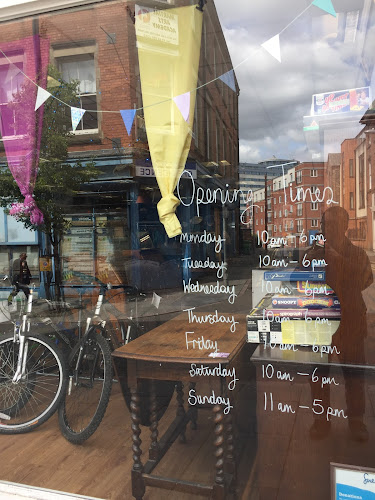 Opening Times
Monday 10am - 6pm
Tuesday 10am - 6pm
Wednesday 10am - 6pm
Thursday 10am - 6pm
Friday 10am - 6pm
Saturday 10am - 6pm
Sunday 11am - 5pm
SNOOPY
Donations